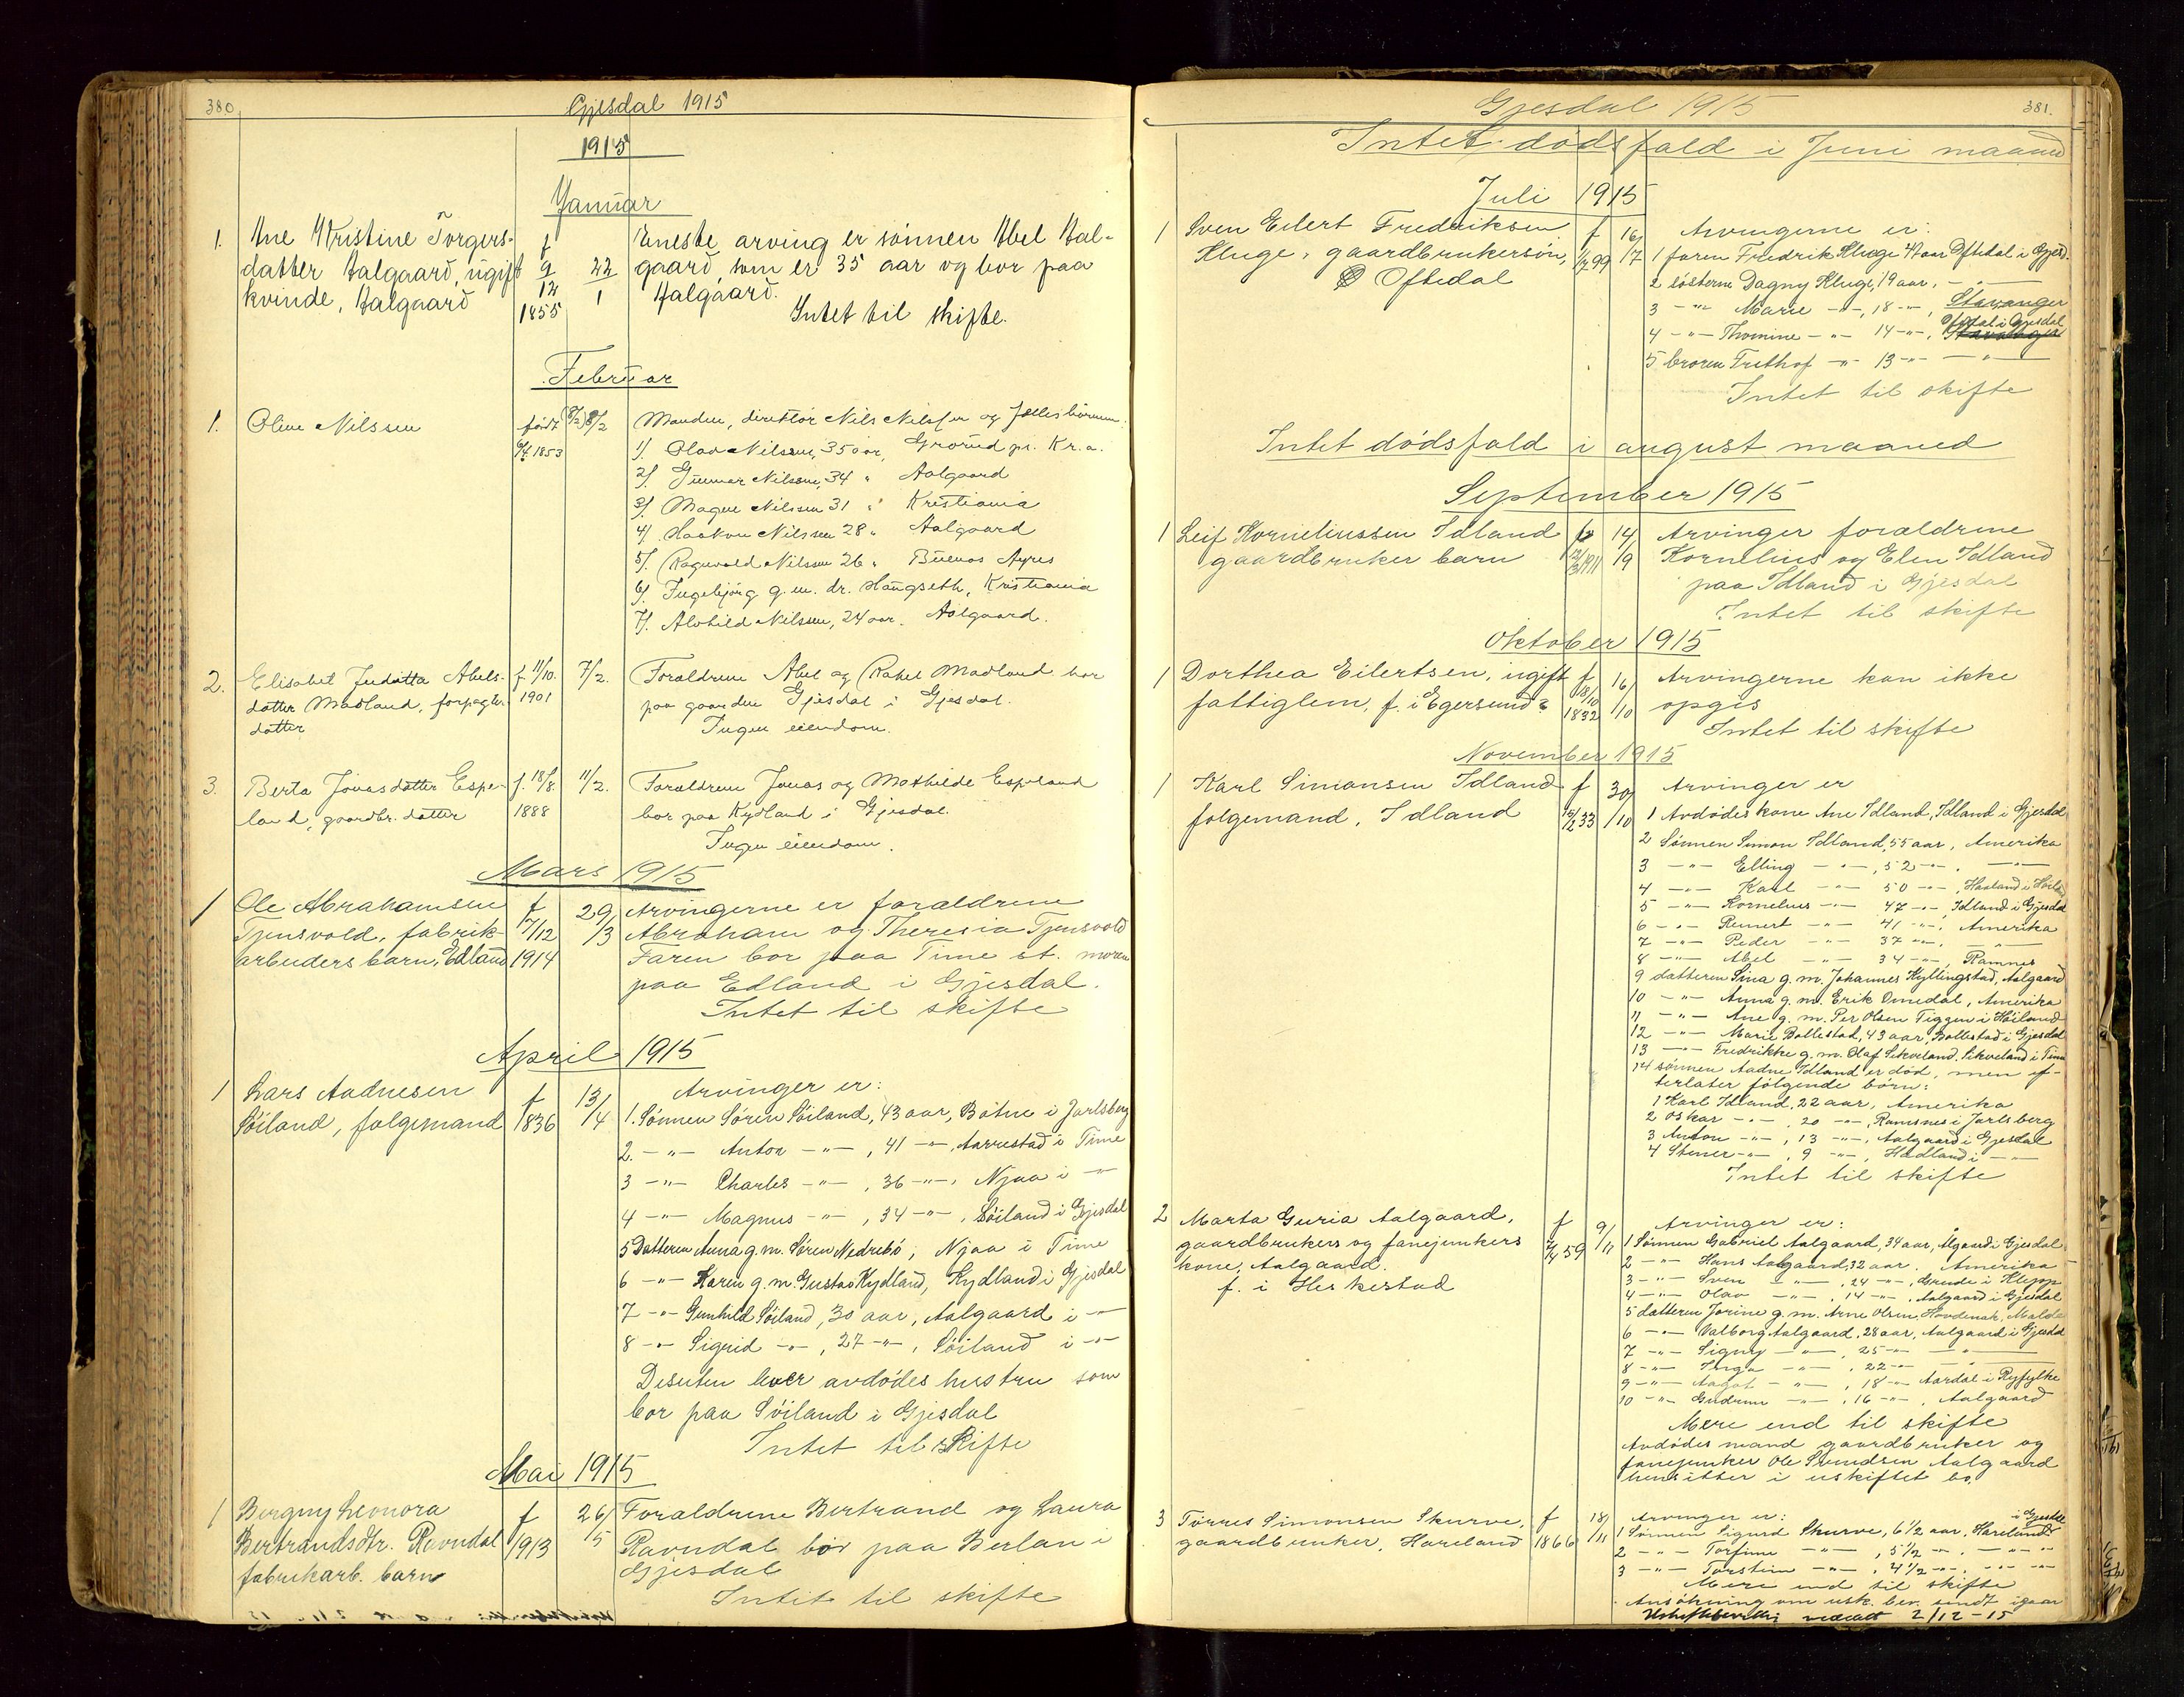 380
Gjesdal 1915
1915
Januar
1. Ane Kristine Torgers-
datter Aalgaard, ugift
kvinde, Aalgaard
f
9
12
1855
22
1
Eneste arving er sønnen Abel Aal-
gaard, som er 35 aar og bor paa
Aalgaard.
Intet til skifte.
Februar
1. Oline Nilssen
født
6/4 1853
(8/2) 8/2
Manden, direktør Nils Nilssen og fællesbørnene:
1). Olav Nilssen, 35 aar, Grorud pr. Kr.a.
2). Gunnar Nilssen, 34 " Aalgaard
3). Magne Nilssen 31 " Kristiania
4). Haakon Nilssen 28 " Aalgaard
5). Ragnvald Nilssen 26 " Buenos Ayres
6). Ingebjørg g.m. dr. Haugseth, Kristiania
7). Alvhild Nilssen, 24 aar. Aalgaard.
2. Elisabet Judatta Abels-
datter Madland, forpagter-
datter
f. 11/10.
1901
7/2.
Forældrene Abel og Rakel Madland bor
paa gaarden Gjesdal i Gjesdal.
Ingen eiendom.
3. Berta Jonasdatter Espe-
land, gaardbr. datter
f. 18/8.
1888
11/2.
Forældrene Jonas og Mathilde Espeland
bor paa Kydland i Gjesdal.
Ingen eiendom.
Mars 1915
1 Ole Abrahamsen
Tjensvold, fabrik-
arbeiders barn, Edland
f
17/12
1914
29/3
Arvingerne er forældrene
Abraham og Theresia Tjensvold
Faren bor paa Time st. moren
paa Edland i Gjesdal.
Intet til skifte
April 1915
1 Lars Aadnesen
Søiland, folgemand
f
1836
13/4
Arvinger er:
1. Sønnen Søren Søiland, 43 aar, Botne i Jarlsberg
2. -"- Anton -"- , 41 -"-, Aarrestad i Time
3 -"- Charles -"- , 36 -"-, Njaa i -"-
4 -"- Magnus -"- , 34 -"-, Søiland i Gjesdal
5 Datteren Anna g.m. Søren Nedrebø, Njaa i Time
6 -"- Karen g.m. Gustav Kydland, Kydland i Gjesdal
7 -"- Gunhild Søiland, 30 aar, Aalgaard i -"-
8 -"- Sigrid -"- , 27 -"-, Søiland i -"-
Desuten lever avdødes hustru som
bor paa Søiland i Gjesdal
Intet til skifte
Mai 1915
1 Bergny Leonora
Bertrandsdtr. Ravndal
fabrikarb. barn
f
1913
26/5
Forældrene Bertrand og Laura
Ravndal bor paa Berlan i
Gjesdal
Intet til skifte
Gjesdal 1915
381.
Intet dødsfald i Juni maaned
Juli 1915
1 Sven Eilert Fredriksen
Kluge, gaardbrukersøn,
Oftedal
f
1/7 99
16/7
Arvingerne er:
1 faren Fredrik Kluge 47 aar Oftedal i Gjesd.
2 søsterne Dagny Kluge, 19 aar, -"-
3 -"- Marie -"-, 18 -"-, Stavanger
4 -"- Thomine -"- 14 -"-, Oftedal i Gjesdal
5 broren Frithof -"- 13 -"- -"-
Intet til skifte
Intet dødsfald i august maaned
September 1915
1 Leif Korneliussen Idland
gaardbruker barn
f
1911
14/9
Arvinger forældrene
Kornelius og Elen Idland
paa Idland i Gjesdal
Intet til skifte
Oktober 1915
1 Dorthea Eilertsen, ugift
fattiglem, f. i Egersund?
f
18/10
1832
16/10
Arvingerne kan ikke
opgis
Intet til skifte
November 1915
1 Karl Simonsen Idland
folgemand, Idland
f
15/2 33
30/10
Arvinger er
1 Avdødes kone Ane Idland, Idland i Gjesdal
2 Sønnen Simon Idland, 55 aar, Amerika
3 -"- Elling -"-, 52 -"-. -"-
4 -"- Karl -"- 50 -"-, Haaland i Høiland
5 -"- Kornelius -"- 47 -"-, Idland i Gjesdal
6 -"- Reinert -"- 41 -"-, Amerika
7 -"- Peder -"- 37 -"-, -"-
8 -"- Abel -"- 34 -"-, Ramnes
9 datteren Sina g.m. Johannes Kyllingstad, Aalgaard
10 -"- Anna g.m. Erik Omedal, Amerika
11 -"- Ane g.m. Per Olsen Tiggen i Høiland
12 -"- Marie Bollestad, 43 aar, Bollestad i Gjesdal
13 -"- Fredrikke g.m. Olaf Sikveland, Sikveland i Time
14 sønnen Aadne Idland er død, men ef-
terlater følgende børn:
1 Karl Idland, 22 aar, Amerika
2 Oskar -"- , 20 -"-, Ramnes i Jarlsberg
3 Anton -"- , 13 -"-, Aalgaard i Gjesdal
4 Stener -"- , 9 -"-, Hadland i -"-
Intet til skifte
2 Marta Guria Aalgaard,
gaardbrukers og fanejunkers
kone, Aalgaard.
f. i Heskestad
f
59
9/11
Arvinger er:
1 Sønnen Gabriel Aalgaard, 34 aar, Algaard i Gjesdal
2 -"- Hans Aalgaard, 32 aar. Amerika
3 -"- Sven -"-, 24 -"-, Grude i Klepp
4 -"- Olav -"-, 14 -"-, Aalgaard i Gjesdal
5 datteren Jorine g.m. Arne Olsen Hovdenak, Molde
6 -"- Valborg Aalgaard, 28 aar, Aalgaard i Gjesdal
7 -"- Signy -"-, 25 -"- -"-
8 -"- Inga -"-, 22 -"- -"-
9 -"- Aagot -"-, 18 -"- Aardal i Ryfylke
10 -"- Gudrun -"-, 16 -"-, Aalgaard
Mere end til skifte
Avdødes mand gaardbruker og
fanejunker Ole Svendsen Aalgaard
hensitter i uskiftet bo.
3 Tørres Simonsen Skurve,
gaardbruker, Hareland
f
1866
18/11
Arvinger er:
i Gjesdal
1 Sønnen Sigurd Skurve, 6 1/2 aar, Hareland
2 -"- Torfinn -"-, 5 1/2 -"-. -"-
3 -"- Torstein -"-, 4 1/2 -"-. -"-
Mere end til skifte
Ansøkning om usk. bev. sendt igaar
Uskiftebevilling meddelt 2/12-15